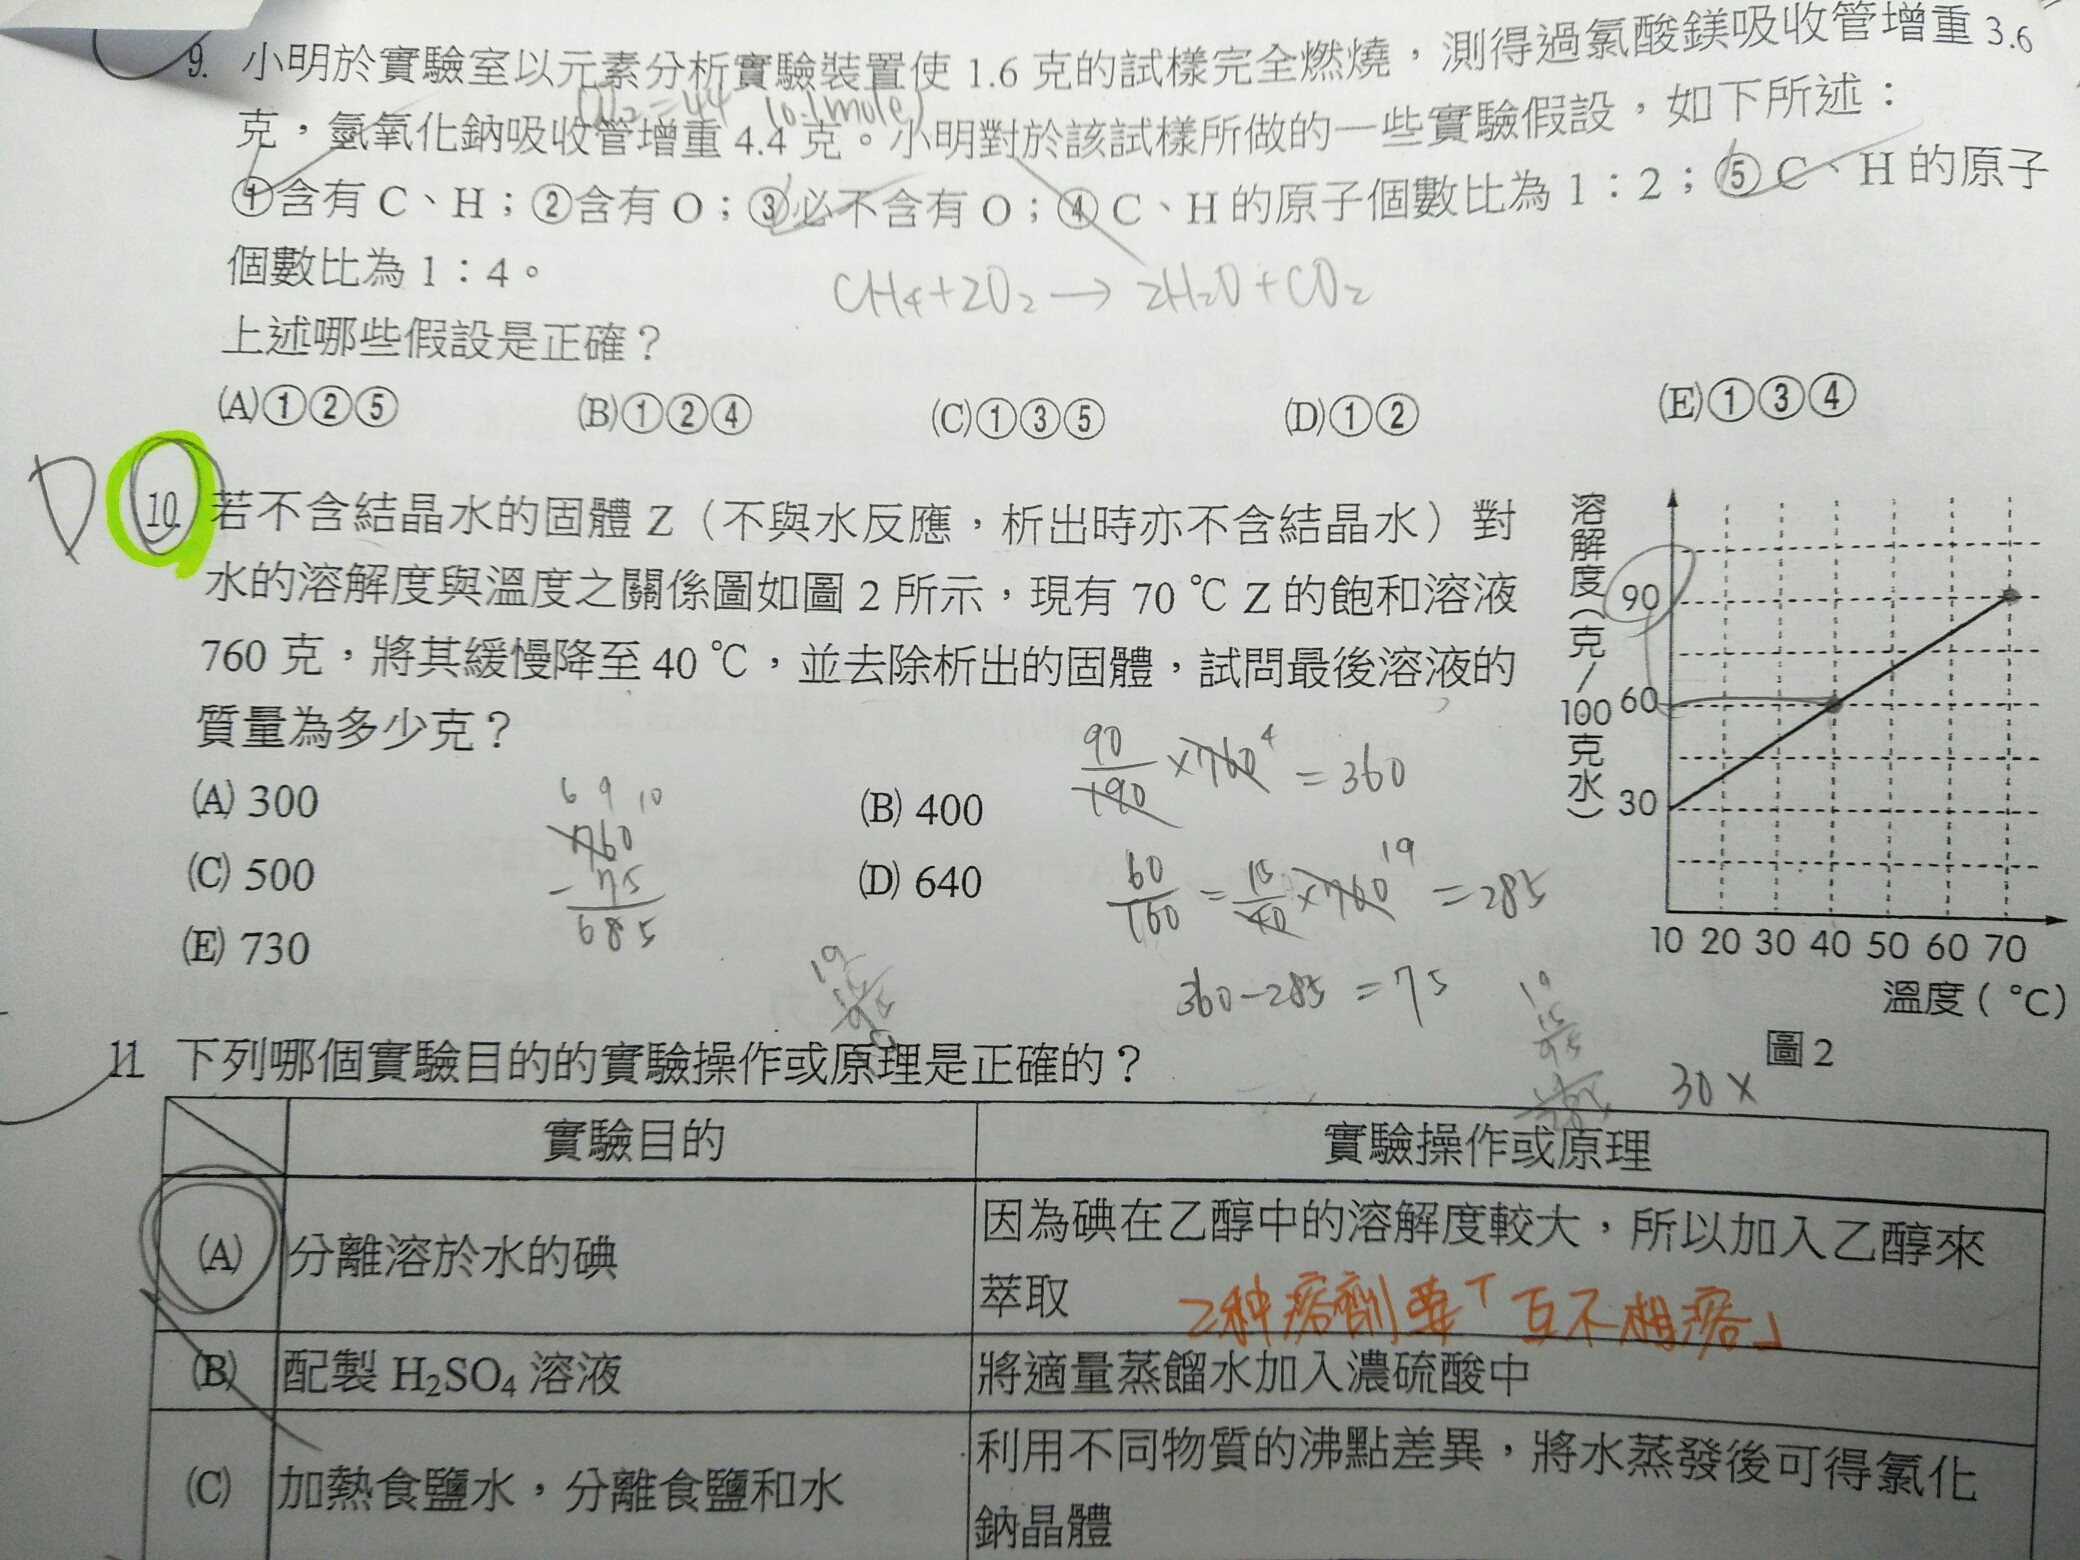 9. 小明於實驗室以元素分析實驗裝置使 1.6 克的試樣完全燃燒，測得過氯酸鎂吸收管增重 3.6
CO₂ = 44 (0.1mole)
克，氫氧化鈉吸收管增重 4.4 克。小明對於該試樣所做的一些實驗假設，如下所述：
①含有 C、H；②含有 O；③必不含有 O；④ C、H 的原子個數比為 1：2；⑤ C、H 的原子
個數比為 1：4。
CH₄+2O₂ → 2H₂O+CO₂
上述哪些假設是正確？
(A)①②⑤ (B)①②④ (C)①③⑤ (D)①② (E)①③④
D 10. 若不含結晶水的固體 Z（不與水反應，析出時亦不含結晶水）對
水的溶解度與溫度之關係圖如圖 2 所示，現有 70 ℃ Z 的飽和溶液
760 克，將其緩慢降至 40 ℃，並去除析出的固體，試問最後溶液的
質量為多少克？
(A) 300 (B) 400
(C) 500 (D) 640
(E) 730
90/190 ×760 4 = 360
60/160 = 15/40 ×760 19 = 285
360-285 = 75
6 9 10
760
- 75
685
溶解度（克/100克水）
90
60
30
10 20 30 40 50 60 70
溫度（℃）
圖 2
30 x
11. 下列哪個實驗目的的實驗操作或原理是正確的？
實驗目的 實驗操作或原理
(A) 分離溶於水的碘 因為碘在乙醇中的溶解度較大，所以加入乙醇來
萃取
2種溶劑要「互不相溶」
(B) 配製 H₂SO₄ 溶液 將適量蒸餾水加入濃硫酸中
(C) 加熱食鹽水，分離食鹽和水 利用不同物質的沸點差異，將水蒸發後可得氯化
鈉晶體